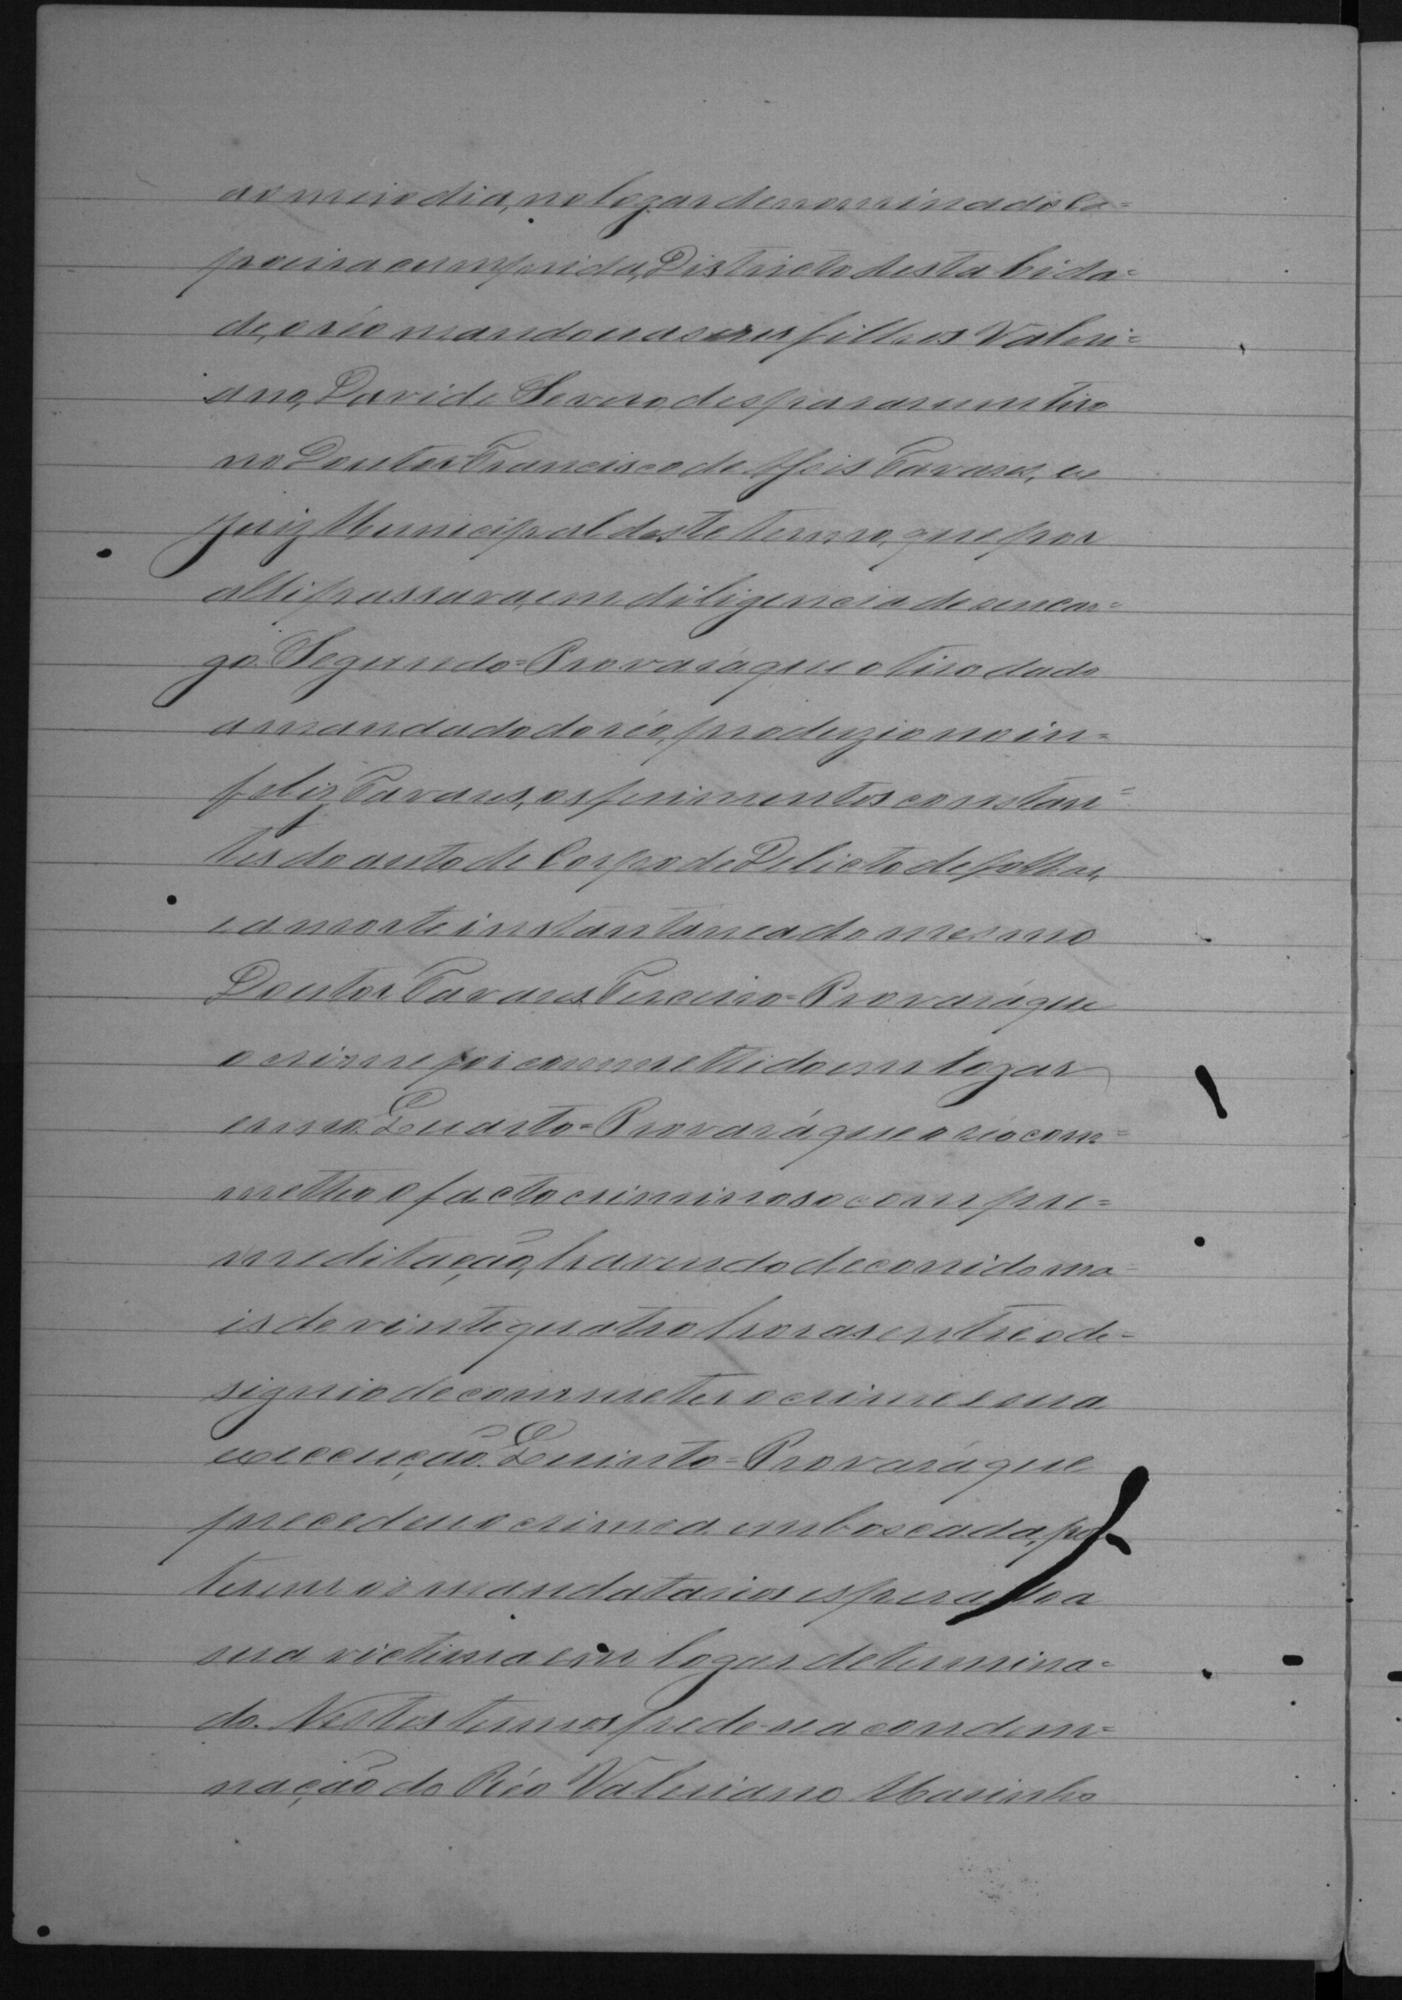 ao meio dia, no logar denominado Ca=
poeira cumprida, Districto desta Cida=
de, o réo mandou a seus filhos Valeri=
ano, David e Severo, despararem um tiro
no Doutor Francisco de Assis Tavares, ex
Juiz Municipal deste termo, que por
alli passava, em diligencia de seu car=
go. Segundo = Provará que o tiro dado
a mandado do réo, produzio no in=
feliz Tavares, os ferimentos constan=
tes do auto de Corpo de Delicto de folhas,
e a morte instantanea do mesmo
Doutor Tavares. Terceiro = Provará que
o crime foi commettido em logar
ermo. Quarto = Provará que o réo com=
metteo o facto criminoso com pre=
meditação, havendo decorrido ma=
is de vinte quatro horas entre o de=
signio de commeter o crime e sua
execução. Quinto = Provará que
precedeu o crime a emboscada, por
terem os mandatarios esperado a
sua victima em logar determina=
do. Nestes termos pede-se a condem=
nação do Réo Valeriano Marinho